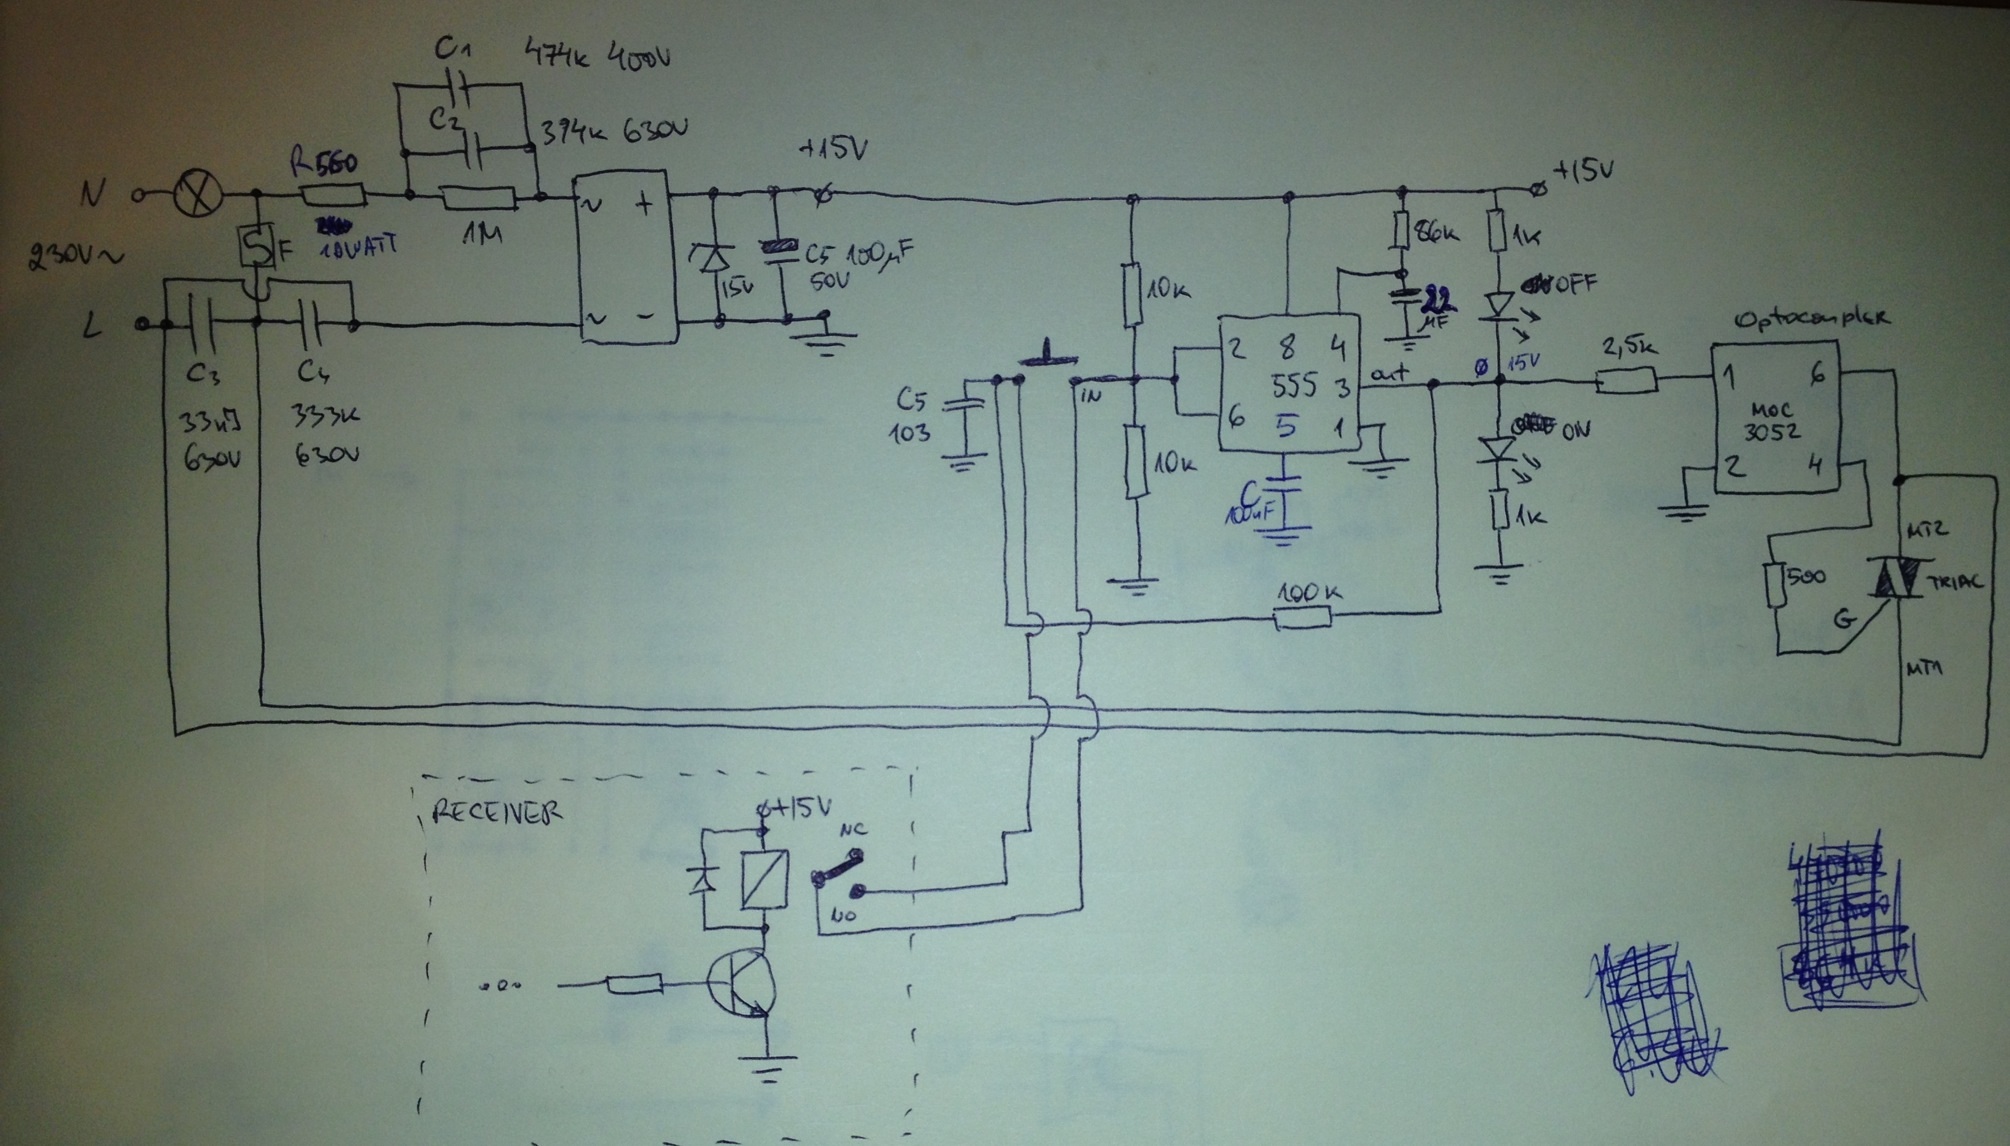 C1 474k 400V
C2
394k 630V
N
R560
10WATT
1M
230V~
F
L
~ +
~ -
+15V
15V
C5 100µF
50V
C3
33nJ
630V
C4
333k
630V
10k
10k
C5
103
iN
2 8 4
555 3
6 5 1
out
C
100nF
86k
22
µF
1k
+15V
OFF
Ø 15V
ON
1k
2,5k
Optocoupler
1 6
MOC
3052
2 4
MT2
500
TRIAC
G
MT1
100k
RECEIVER
+15V
NC
NO